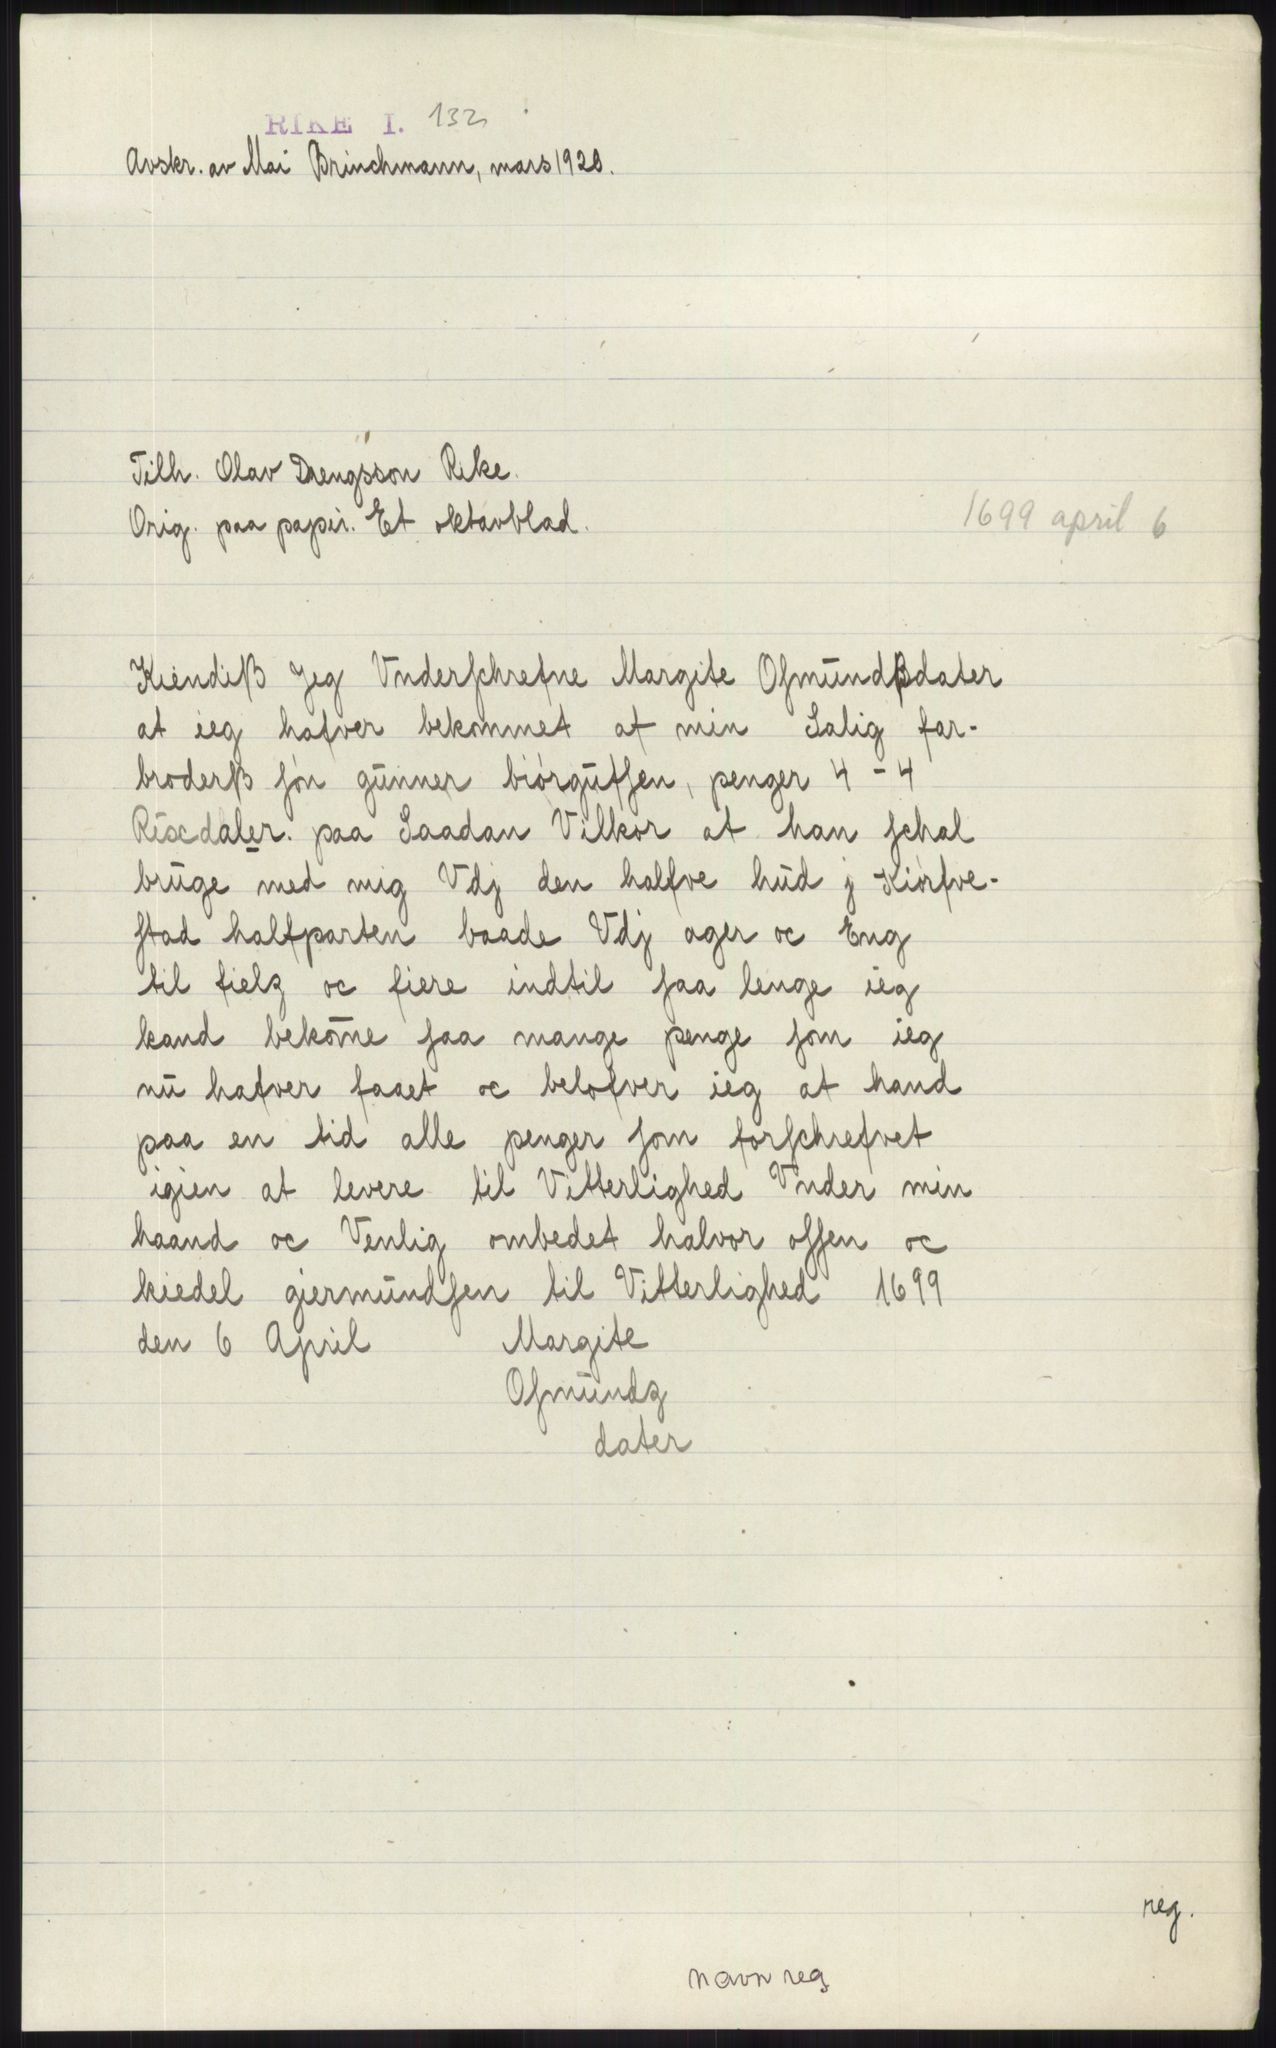 RIKE I. 132
Avskr. av Mai Brinchmann, mars 1920.
Tilh. Olav Drengsson Rike.
Orig. paa papir. Et oktavblad.
1699 april 6
Kiendiß Jeg Vnderſchrefne Margite Oſmündßdater
at ieg hafver bekommet af min Salig far-
broderß ſøn günner biørgülfſen, penger 4 - 4
Rixdaler. paa Saadan Vilkor at han ſchal
brüge med mig Vdj den halfve hüd j Kiørfve-
ſtad halfparten baade Vdj ager oc Eng
til fielz oc fiere indtil ſaa lenge ieg
kand bekom̅e ſaa mange penge ſom ieg
nü hafver faaet oc belofver ieg at hand
paa en tid alle penger ſom forſchrefvet
igien at levere til Vitterlighed Vnder min
haand oc Venlig ombedet halvor olſſen oc
kiedel giermündſen til Vitterlighed 1699
den 6 April Margite
Oſmündz
dater
reg.
navnreg